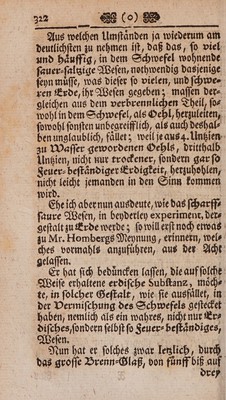 322 (0)
Aus welchen Umständen ja wiederum am
deutlichsten zu nehmen ist, daß das, so viel
und häuffig, in dem Schwefel wohnende
sauer-saltzige Wesen, nothwendig dasjenige
seyn müsse, was dieser so vielen, und schwe-
ren Erde, ihr Wesen gegeben; massen der-
gleichen aus dem verbrennlichen Theil, so-
wohl in dem Schwefel, als Oehl, herzuleiten,
sowohl sonsten unbegreifflich, als auch deshal-
ben unglaublich, fället; weil je aus 4. Untzien
zu Wasser gewordenen Oehls, dritthalb
Untzien, nicht nur trockener, sondern gar so
Feuer-beständiger Erdigkeit, herzuhohlen,
nicht leicht jemanden in den Sinn kommen
wird.
Ehe ich aber nun ausdeute, wie das scharff-
saure Wesen, in beyderley experiment, der-
gestalt zu Erde werde; so will erst noch etwas
zu Mr. Hombergs Meynung, erinnern, wel-
ches vormahls anzuführen, aus der Acht
gelassen.
Er hat sich bedüncken lassen, die auf solche
Weise erhaltene erdische Substanz, möch-
te, in solcher Gestalt, wie sie ausfället, in
der Vermischung des Schwefels gestecket
haben, nemlich als ein wahres, nicht nur Er-
disches, sondern selbst so Feuer-beständiges,
Wesen.
Nun hat er solches zwar letzlich, durch
das grosse Brenn-Glaß, von fünff biß auf
drey